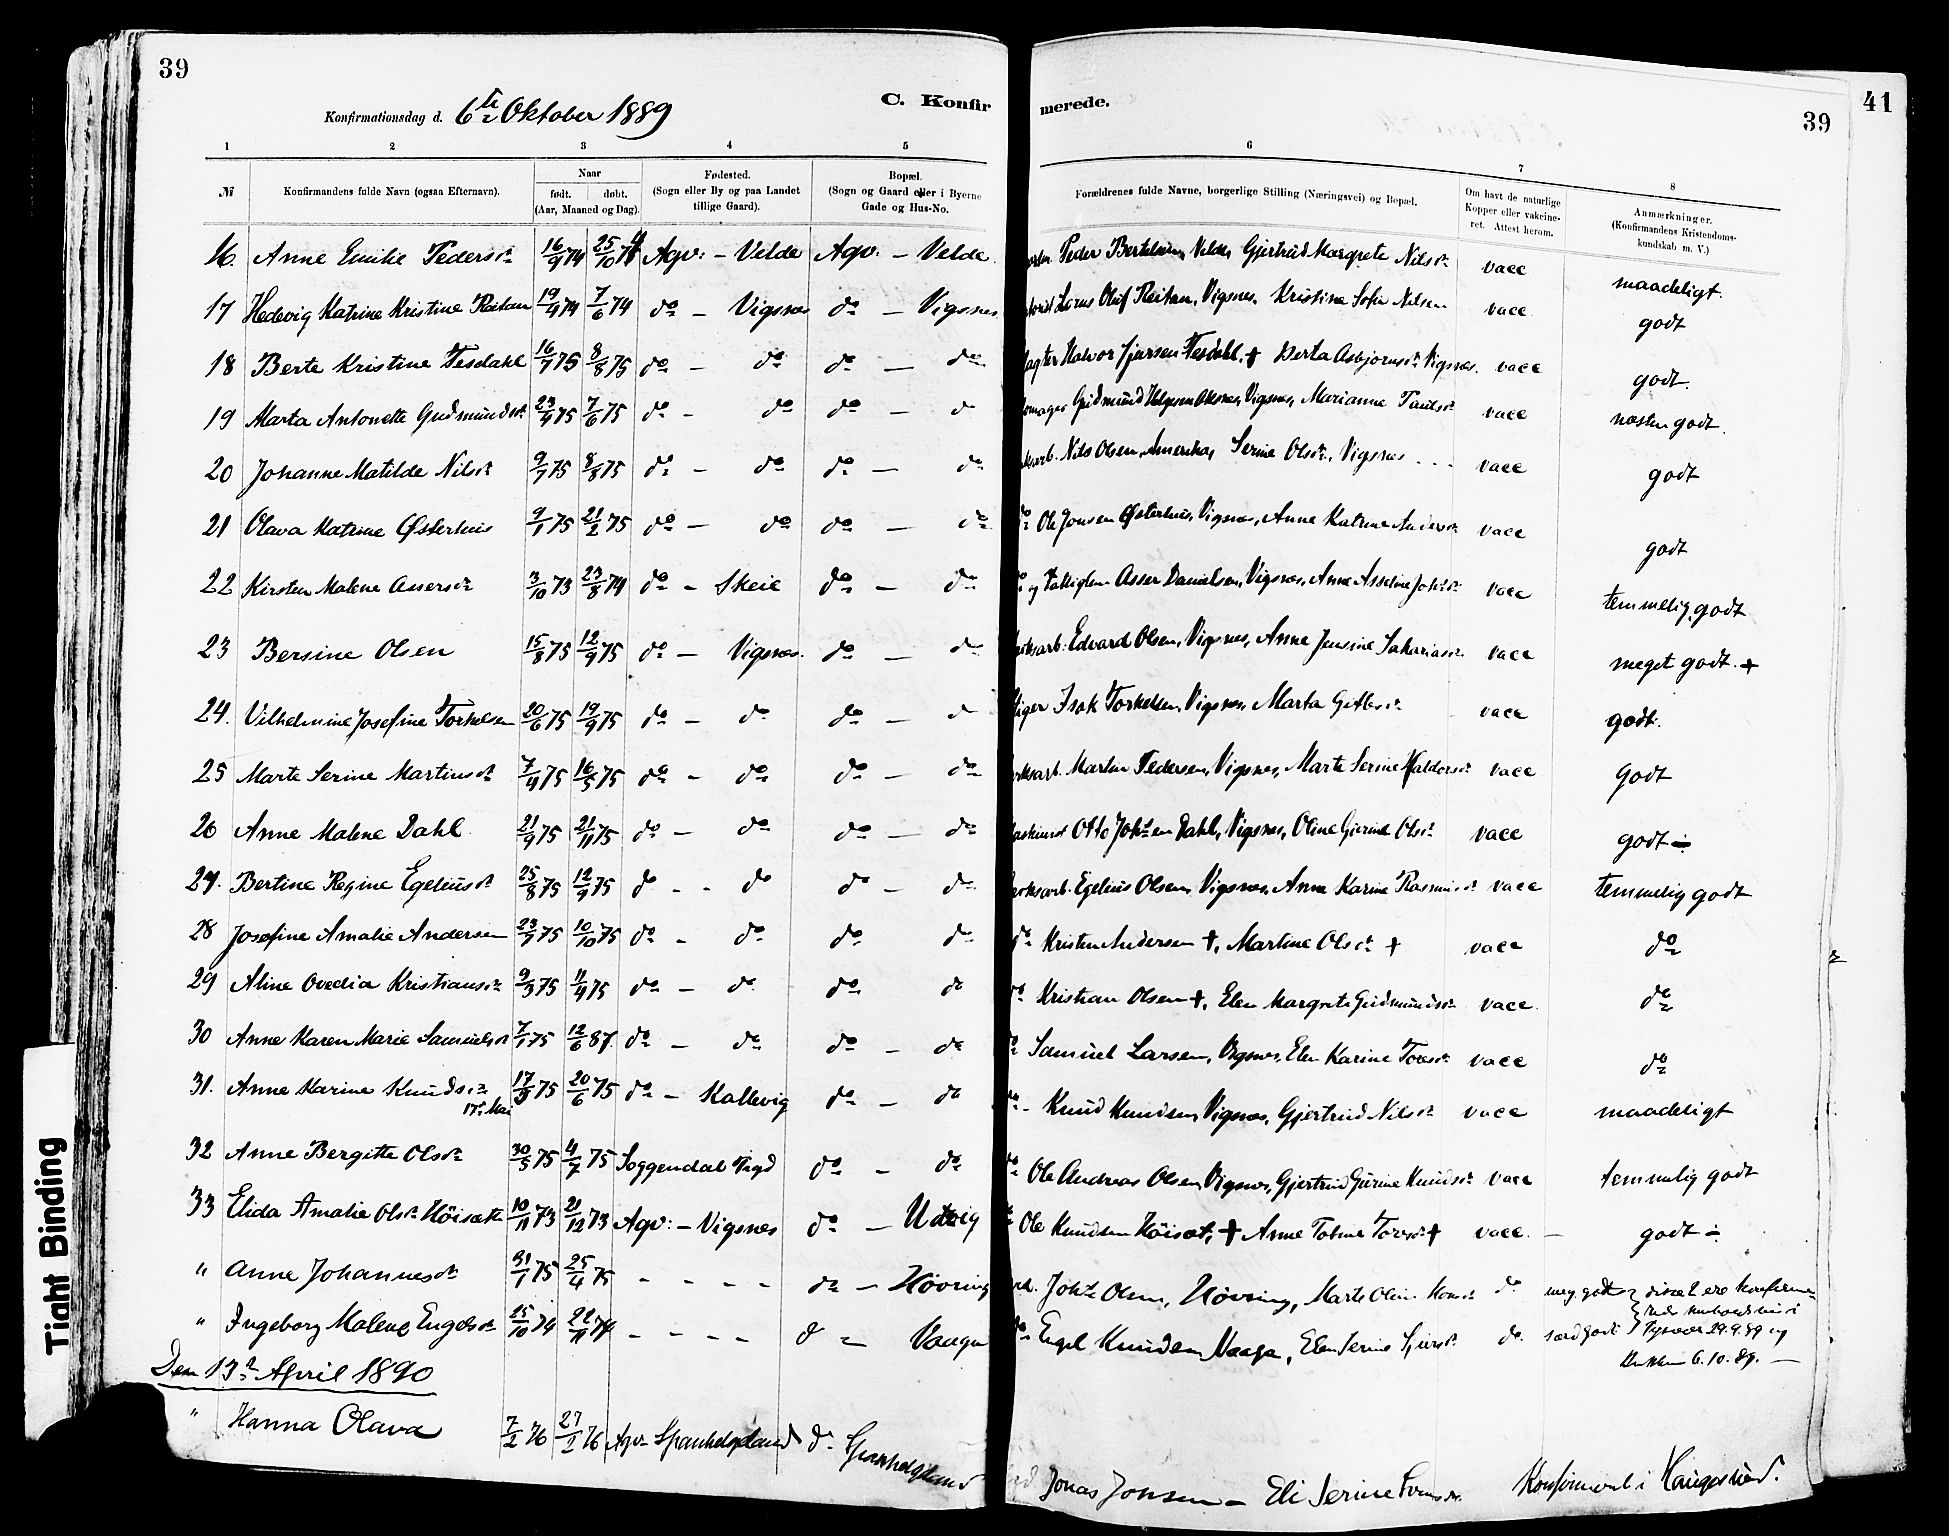 39
41
39
Konfirmationsdag d. 6te Oktober 1889
C. Konfir merede.
1 2 3 4 5 6 7 8
№ Konfirmandens fulde Navn (ogsaa Efternavn). Naar født. døbt. (Aar, Maaned og Dag). Fødested. (Sogn eller By og paa Landet tillige Gaard). Bopæl. (Sogn og Gaard eller i Byerne Gade og Hus-No. Forældrenes fulde Navne, borgerlige Stilling (Næringsvei) og Bopæl. Om havt de naturlige Kopper eller vakcineret. Attest herom. Anmærkninger. (Konfirmandens Kristendomskundskab m. V.)
16. Anne Emilie Pedersdr 16/9 74 25/10 74 Agv: – Velde Agv: – Velde. Peder Bertelsen, Velde, Gjertrud Margrete Nilsdr vacc maadeligt.
17 Hedevig Katrine Kristine Reitan 19/4 74 7/6 74 do – Vigsnes do – Vigsnes Lorns Oluf Reitan, Vigsnes. Kristine Sofie Nilsen vacc godt
18 Berte Kristine Tesdahl 16/7 75 8/8 75 do – do do – do Halvor Tesdahl, + Berta Asbjørnsdr Vigsnes. vacc godt.
19 Marta Antonette Gudmundsdr 23/4 75 7/6 75 do – do do – do Gudmund Vigsnes, Marianne Paulsdr vacc næsten godt.
20 Johanne Matilde Nilsdr 9/7 75 8/8 75 do – do do – do Nils Olsen, Amerika, Serine Olsdr, Vigsnes vacc godt
21 Olava Katrine Østerhus 9/1 75 21/2 75 do – do do – do do Ole Jonsen Østerhus, Vigsnes, Anne Katrine Andersdr vacc godt
22 Kirsten Malene Assersdr 3/10 73 23/8 74 do – Skeie do – do Asser Danielsen, Vigsnes, Anne Asseline vacc temmelig godt
23 Bersine Olsen 15/8 75 12/9 75 do – Vigsnes. do – do Edvard Olsen, Vigsnes, Anne Jensine Sakariasdr vacc meget godt. +
24. Vilhelmine Josefine Torkelsen 20/6 75 19/9 75 do – do do – do Isak Torkelsen, Vigsnes, Marta vacc godt.
25 Marte Serine Martinsdr 7/4 75 16/5 75 do – do do – do Martin Pedersen, Vigsnes, Marte Serine Haldorsdr vacc godt
26 Anne Malene Dahl 21/9 75 21/11 75 do – do do – do Otto Dahl, Vigsnes, Oline Gjerine Olsdr vacc godt ÷
27. Bertine Regine Egeliusdr 25/8 75 12/9 75 do - - do do – do Egelius Olsen, Vigsnes, Anne Karine Rasmusdr vacc temmelig godt
28 Josefine Amalie Andersen 23/7 75 10/10 75 do – do do do do Kristen Andersen +, Martine Olsdr + vacc do
29 Aline Ovedia Kristiansdr 9/3 75 11/4 75 do – do do do do Kristian Olsen +, Elen Margrete Gudmundsdr vacc. do
30 Anne Karen Marie Samuelsdr 7/1 75 12/6 87. do – do do – do do Samuel Larsen, Vigsnes, Elen Karine Toresdr vacc do
31. Anne Karine Knudsdr 17/5 75 20/6 75 do – Kallevig do – do do – Knud Knudsen, Vigsnes, Gjertrud Nilsdr vacc maadeligt
17de Mai
32 Anne Bergitte Olsdr 30/5 75 4/7 75 Soggendal Prgd do – do do Ole Andreas Olsen, Vigsnes, Gjertrud Gurine Knudsdr vacc temmelig godt
33 Elida Amalie Olsdr Høisæt 10/11 73 21/12 73 Agv: – Vigsnes do – Udvig Ole Knudsen Høisæt, + Anne Tobine Toresdr + vacc. – godt ÷
" Anne Johannesdr 31/1 75 25/4 75 - - - - do – Høvring Johs Olsen, Høvring, Marte Oline do meg. godt } disse 2 ere konfirme-
" Ingeborg Malene Engelsdr 15/10 74 22/11 74 - - - - do – Vaaga do Engel Knudsen Vaaga, Elen Serine do særd. godt } Tysvær 29.9.89 og
6.10.89. –
Den 13de April 1890
" Hanna Olava 7/2 76 27/2 76 Agv: Spanhelgland do Spanhelgland Jonas Jonsen – Eli Serine Konfirmeret i Haugesund.
Tight Binding